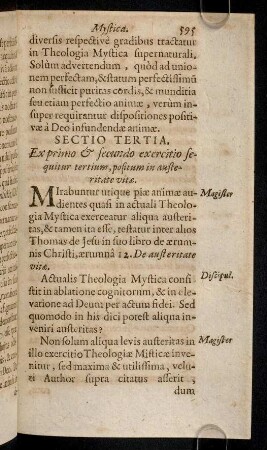 Mystica. 595
diversis respectivè gradibus tractatur
in Theologia Mystica supernaturali.
Solùm advertendum, quòd ad unio-
nem perfectam, & statum perfectissimũ
non sufficit puritas cordis, & munditia
seu etiam perfectio animæ, verùm in-
super requirantur dispositiones positi-
væ à Deo infundendæ animæ.
SECTIO TERTIA.
Ex primo & secundo exercitio se-
quitur tertium, positum in auste-
ritate vitæ.
Mirabuntur utique piæ animæ au- Magister
dientes quasi in actuali Theolo-
gia Mystica exerceatur aliqua austeri-
tas, & tamen ita esse, testatur inter alios
Thomas de Jesu in suo libro de ærum-
nis Christi, ærumnâ 12. De austeritate
vitæ.
Actualis Theologia Mystica consi- Discipul.
stit in ablatione cognitorum, & in ele-
vatione ad Deum per actum fidei. Sed
quomodo in his dici potest aliqua in-
veniri austeritas?
Non solum aliqua levis austeritas in Magister
illo exercitio Theologiæ Misticæ inve-
nitur, sed maxima & utilissima, velu-
ti Author supra citatus asserit;
dum